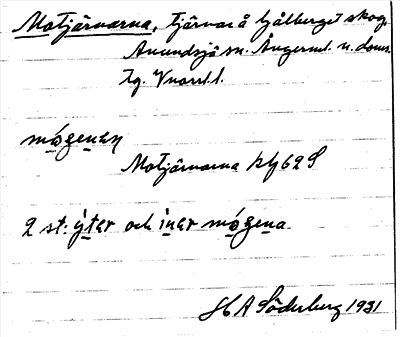 Motjärnarna, tjärnar å Gålberget skog,
Anundsjö sn. Ångerml. n. doms.
tg. Vnorrl. l.
mógenen
Motjärnarna hfl 62 S
2 st: ýter och ìner mógena.
H A Söderberg 1931